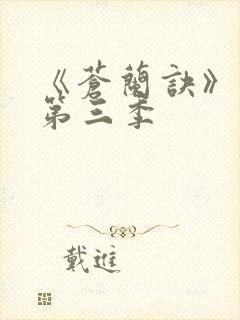 《蒼蘭訣》
第三季
戴進